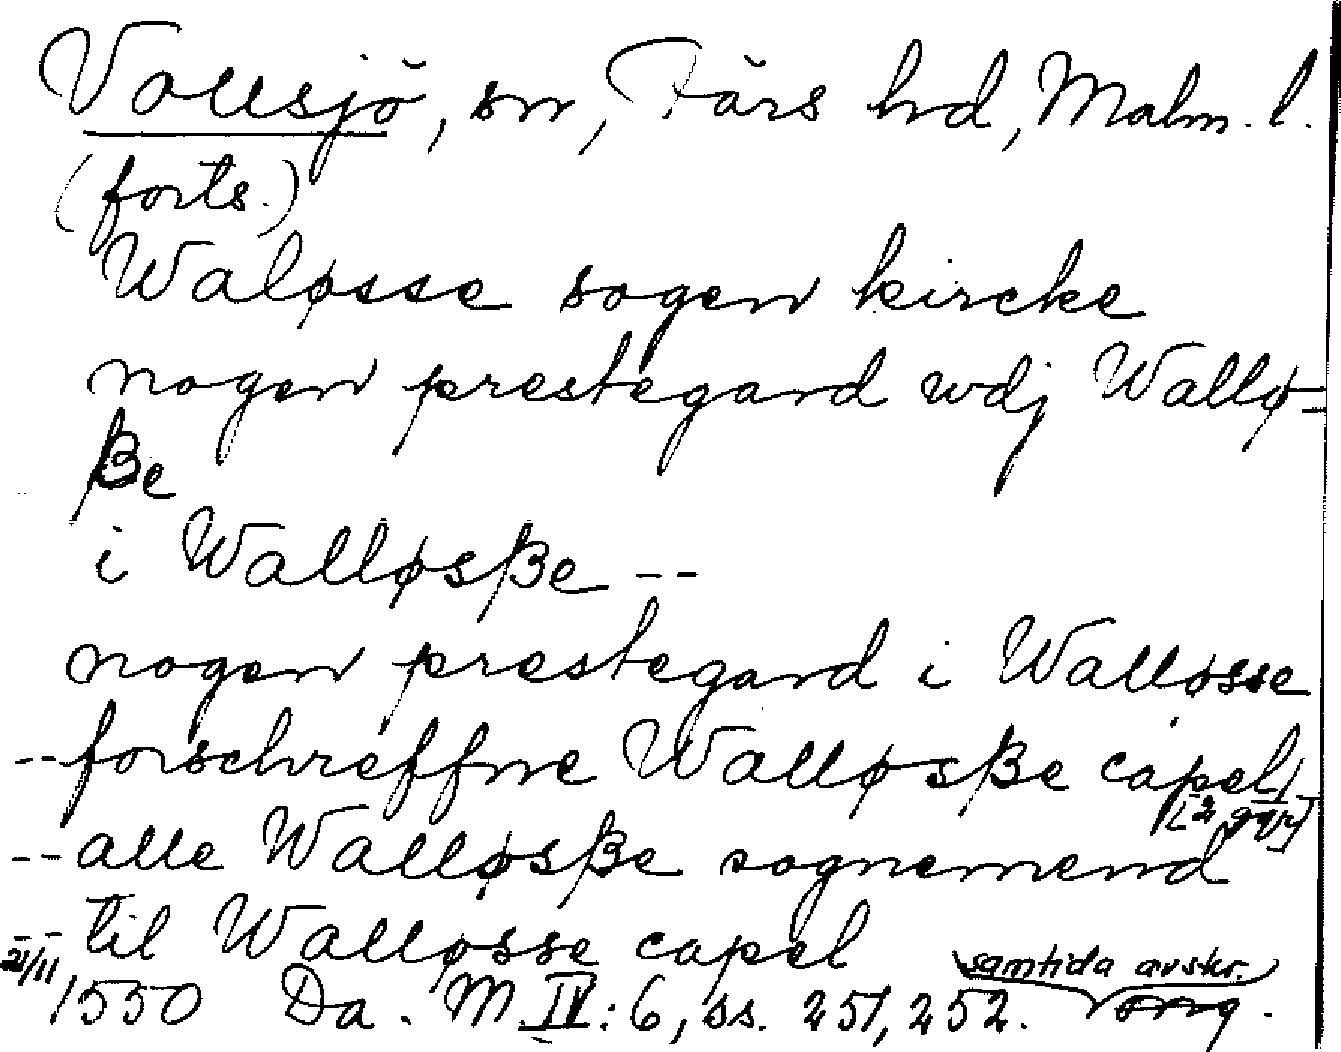 Vollsjö, sn, Färs hd, Malm. l.
(forts.)
Waløsse sogen kircke
nogen prestegard wdj Wallø-
ße
i Walløsße --
nogen prestegard i Walløsse
-- forschreffne Walløsße capel --
[2 ggr]
-- alle Walløsße sognemend
-- til Walløsse capel
21/11 1550 Da. M IV: 6, ss. 251, 252. samtida avskr.
orig.